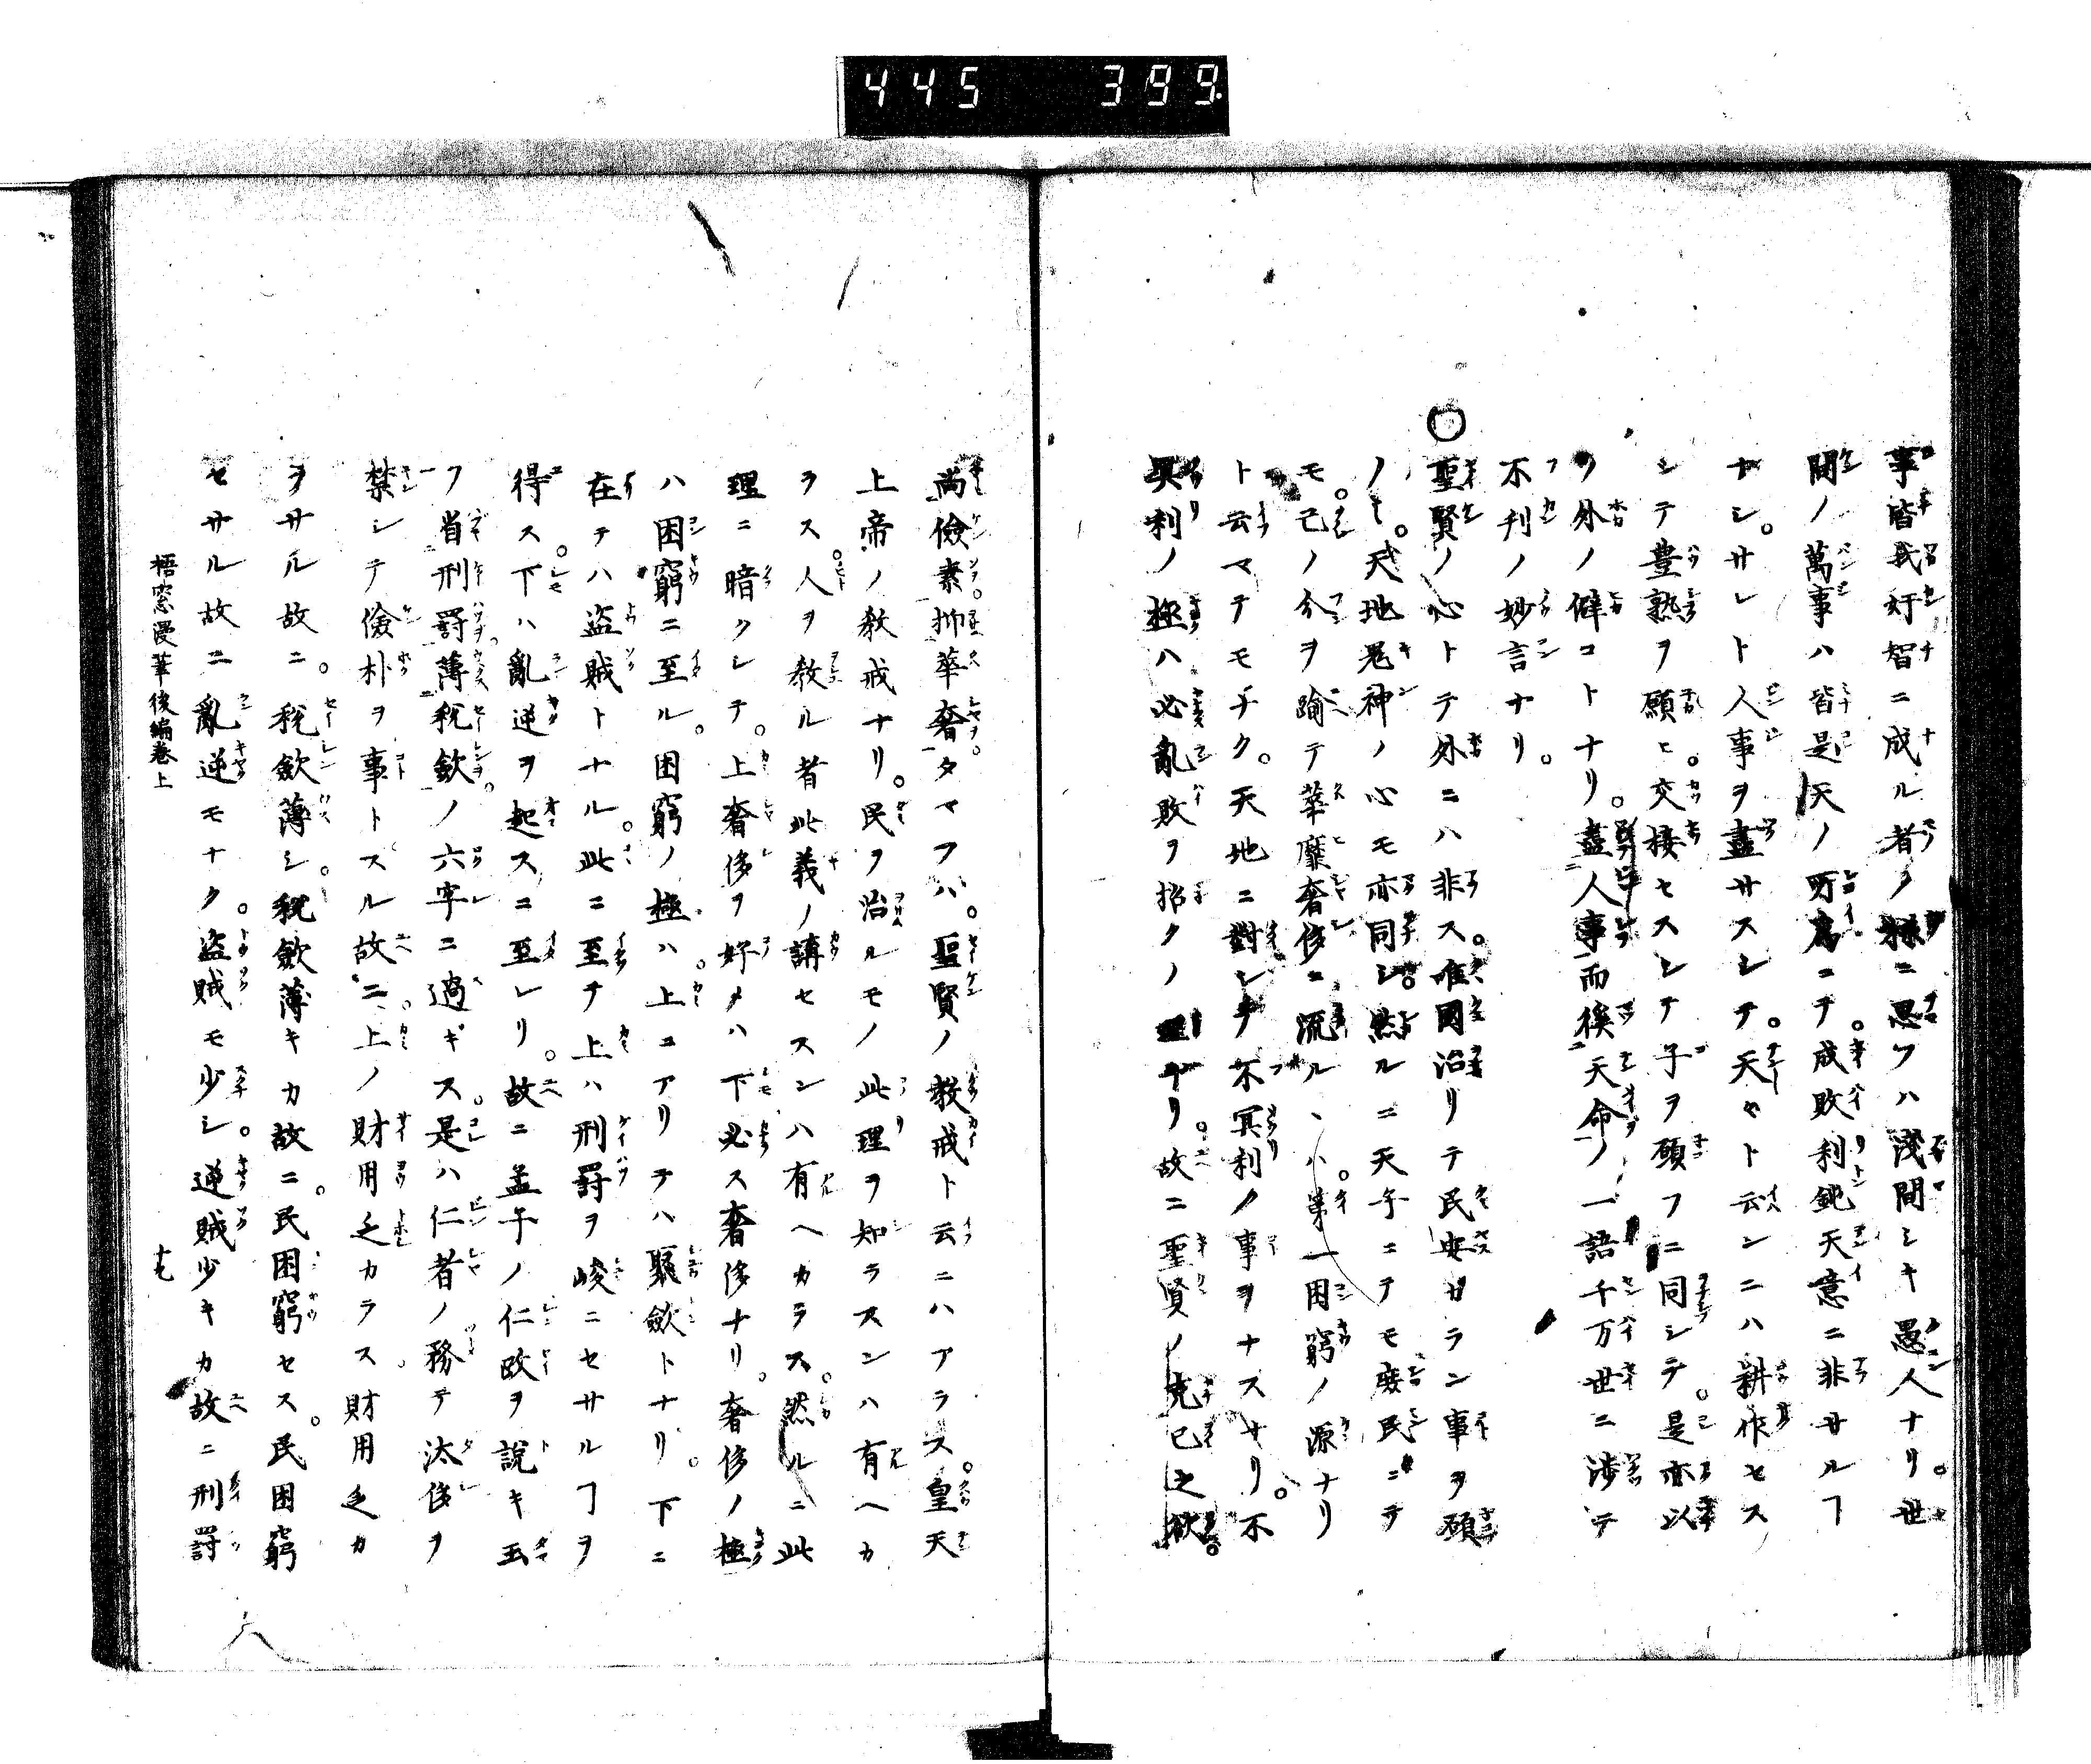 445 399
事皆我好智ニ成ル者ノ様ニ思フハ淺間シキ愚人ナリ。世
間ノ萬事ハ皆是天ノ所爲ニテ。成敗利鈍天意ニ非サルヿ
ナシ。サレト人事ヲ盡サスシテ。天ヤト云ンニハ耕作セス
シテ豊熟ヲ願ヒ。交接セスシテ子ヲ願フニ同シテ。是亦以
ノ外ノ僻コトナリ。盡人事而後天命ノ一語千万世ニ渉テ
不刊ノ妙言ナリ。
○聖賢ノ心トテ外ニハ非ス。唯國治リテ民安カラン事ヲ願
ノミ。天地鬼神ノ心モ亦同シ。然ルニ天子ニテモ庶民ニテ
モ。己ノ分ヲ踰テ華靡奢侈ニ流ルヽハ。第一困窮ノ源ナリ
ト云マテモナク。天地ニ對シテ不冥利ノ事ヲナスナリ。不
冥利ノ極ハ必亂敗ヲ招クノ理ナリ。故ニ聖賢ノ克己之欲。
尚儉素抑華奢タマフハ。聖賢ノ教戒ト云ニハアラス。皇天
上帝ノ教戒ナリ。民ヲ治ルモノ此理ヲ知ラスンハ有ヘカ
ラス。人ヲ教ル者此義ノ講セスンハ有ヘカラス。然ルニ此
理ニ暗クシテ。上奢侈ヲ好メハ下必ス奢侈ナリ。奢侈ノ極
ハ困窮ニ至ル。困窮ノ極ハ。上ニアリテハ聚斂トナリ。下ニ
在テハ盗賊トナル。此ニ至テ上ハ刑罸ヲ峻ニセサルヿヲ
得ス。下ハ亂逆ヲ起スニ至レリ。故ニ孟子ノ仁政ヲ説キ玉
フ省刑罸薄税斂ノ六字ニ過ギス。是ハ仁者ノ務テ汰侈ヲ
禁シテ儉朴ヲ事トスル故ニ。上ノ財用乏カラス。財用乏カ
ラサル故ニ。税斂薄シ。税斂薄キカ故ニ。民困窮セス。民困窮
セサル故ニ亂逆モナク。盗賊モ少シ。逆賊少キカ故ニ刑罸
梧窓漫筆後編卷上